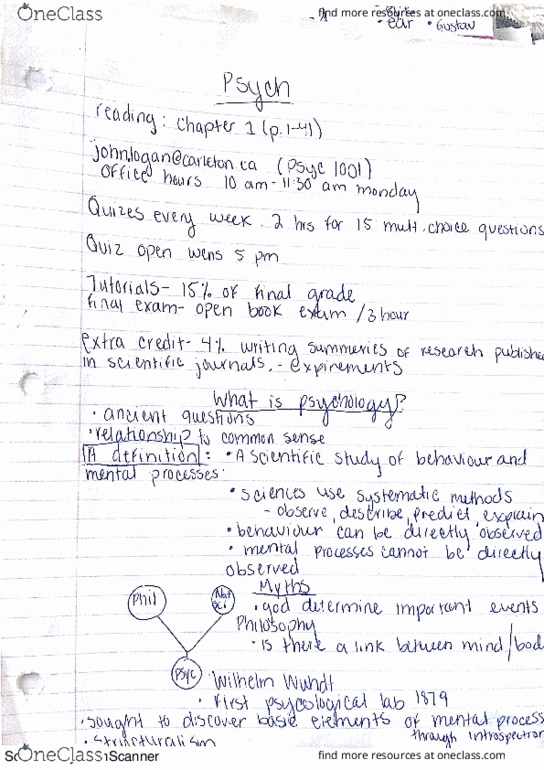 OneClass
find more resources at oneclass.com
ear • Gustav
Psych
reading: Chapter 1 (p.1-41)
john.logan@carleton.ca (PSYC 1001)
office hours 10 am - 11:30 am monday
Quizes every week. 2 hrs for 15 mult. choice questions
Quiz open wens 5 pm
Tutorials - 15% of final grade
final exam - open book exam / 3 hour
extra credit - 4% writing summeries of research publishe
in scientific journals. - expirements
What is psychology?
• ancient questions
• relationship to common sense
A definition: • A scientific study of behaviour and
mental processes:
• sciences use systematic methods
- observe, describe, predict, explain
• behaviour can be directly observed
• mental processes cannot be directly
observed
Myths
Phil
Nat sci
• god determine important events
Philosophy
• is there a link between mind/bod
Psyc
Wilhelm Wundt
• First psycological lab 1879
• sought to discover basic elements of mental process
through introspection
• structuralism
OneClass
Scanner
find more resources at oneclass.com